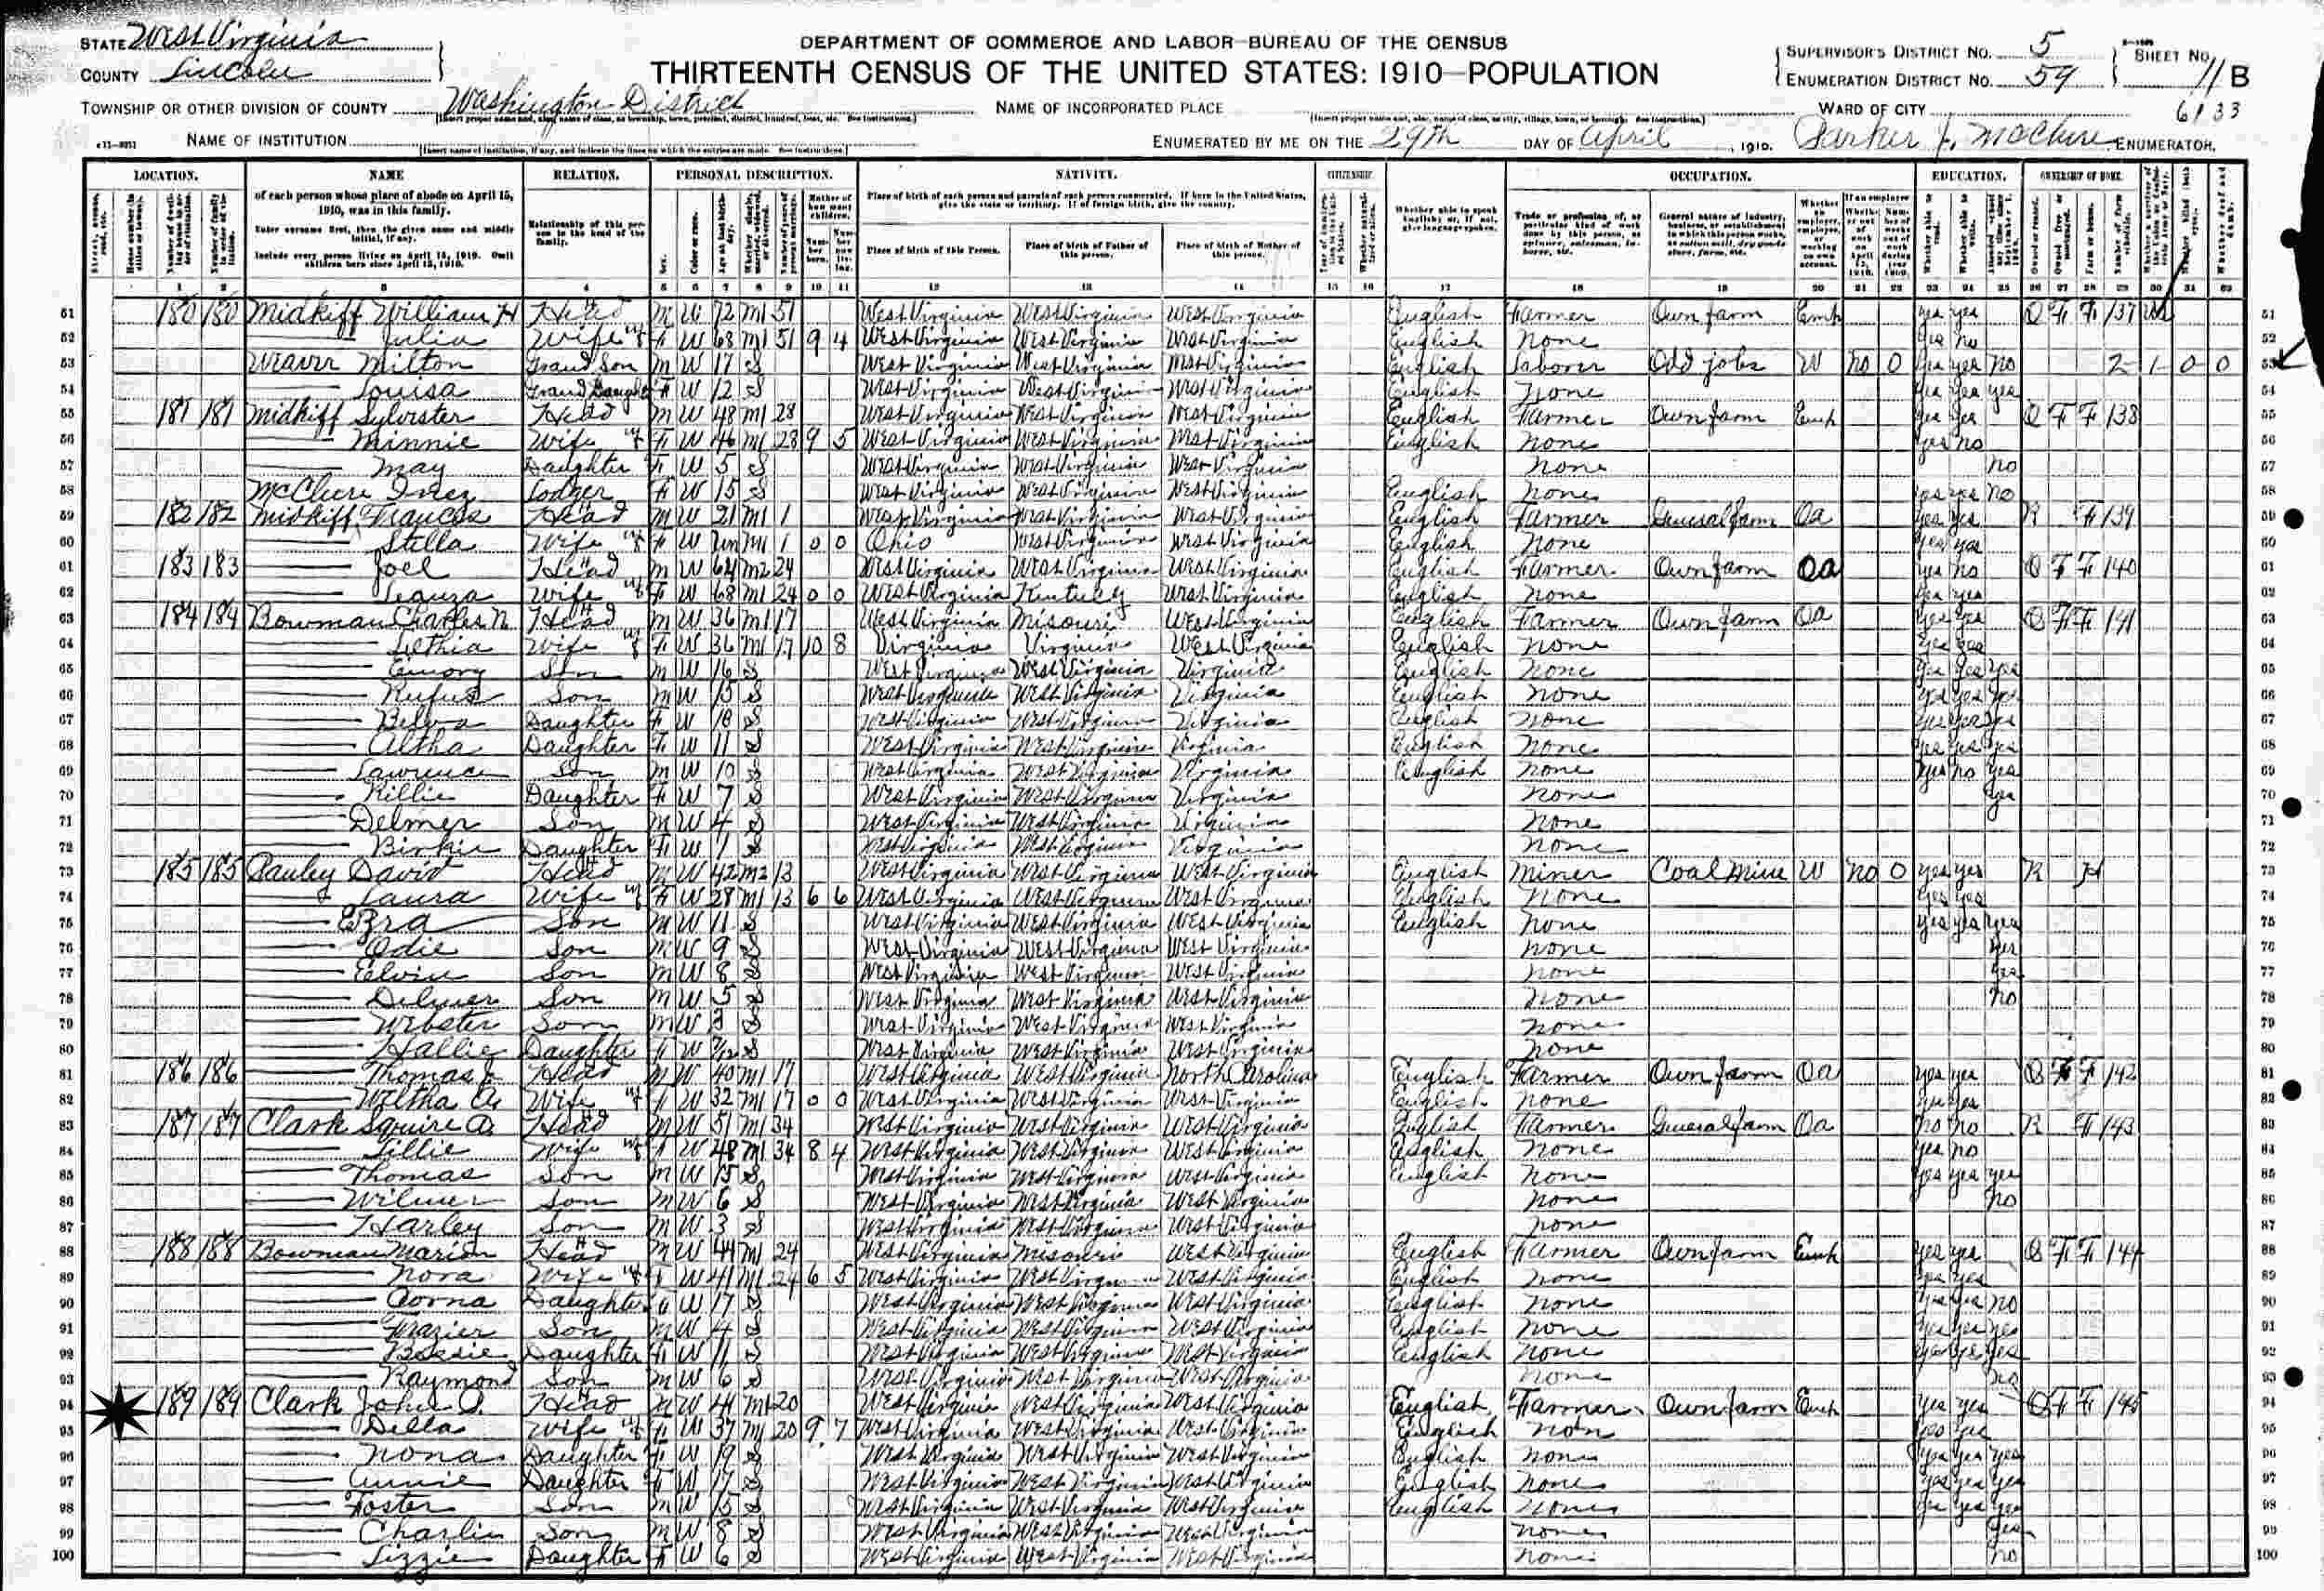 STATE West Virginia
COUNTY Lincoln
DEPARTMENT OF COMMERCE AND LABOR—BUREAU OF THE CENSUS
THIRTEENTH CENSUS OF THE UNITED STATES: 1910—POPULATION
SUPERVISOR'S DISTRICT No. 5
ENUMERATION DISTRICT No. 59
SHEET No. 11 B
TOWNSHIP OR OTHER DIVISION OF COUNTY Washington District
NAME OF INCORPORATED PLACE
WARD OF CITY
6133
NAME OF INSTITUTION
ENUMERATED BY ME ON THE 29th DAY OF April, 1910. Parker J. McClure ENUMERATOR.
LOCATION. NAME RELATION. PERSONAL DESCRIPTION. NATIVITY. CITIZENSHIP. OCCUPATION. EDUCATION. OWNERSHIP OF HOME.
of each person whose place of abode on April 15, 1910, was in this family.
Enter surname first, then the given name and middle initial, if any.
Include every person living on April 15, 1910. Omit children born since April 15, 1910.
Relationship of this person to the head of the family.
Place of birth of each person and parents of each person enumerated. If born in the United States, give the state or territory. If of foreign birth, give the country.
Place of birth of this Person. Place of birth of Father of this person. Place of birth of Mother of this person.
51 180 180 Midkiff William H Head M W 72 M1 51 West Virginia West Virginia West Virginia English Farmer Own farm Emp yes yes O F F 137
52 Julia Wife F W 68 M1 51 9 4 West Virginia West Virginia West Virginia English None yes no
53 Weaver Milton Grand Son M W 17 S West Virginia West Virginia West Virginia English Laborer Odd jobs W no 0 yes yes no 2 1 0 0
54 Louisa Grand Daughter F W 12 S West Virginia West Virginia West Virginia English None yes yes yes
55 181 181 Midkiff Sylvester Head M W 48 M1 28 West Virginia West Virginia West Virginia English Farmer Own farm Emp yes yes O F F 138
56 Minnie Wife F W 46 M1 28 9 5 West Virginia West Virginia West Virginia English None yes no
57 May Daughter F W 5 S West Virginia West Virginia West Virginia None no
58 McClure Inez Lodger F W 15 S West Virginia West Virginia West Virginia English None yes yes no
59 182 182 Midkiff Frances Head M W 21 M1 1 West Virginia West Virginia West Virginia English Farmer General farm Oa yes yes R F 139
60 Stella Wife F W M1 1 0 0 Ohio West Virginia West Virginia English None yes yes
61 183 183 Joel Head M W 64 M2 24 West Virginia West Virginia West Virginia English Farmer Own farm Oa yes no O F F 140
62 Wife F W 68 M1 24 0 0 West Virginia Kentucky West Virginia English None yes yes
63 184 184 Bowman Charles N Head M W 36 M1 17 West Virginia Misouri West Virginia English Farmer Own farm Oa yes yes O F F 141
64 Lethia Wife F W 36 M1 17 10 8 Virginia Virginia West Virginia English None yes yes
65 Emory Son M W 16 S West Virginia West Virginia Virginia English None yes yes yes
66 Rufus Son M W 15 S West Virginia West Virginia Virginia English None yes yes yes
67 Belva Daughter F W S West Virginia West Virginia Virginia English None yes yes yes
68 Altha Daughter F W 11 S West Virginia West Virginia Virginia English None yes yes yes
69 Lawrence Son M W 10 S West Virginia West Virginia Virginia English None yes no yes
70 Daughter F W 7 S West Virginia West Virginia Virginia None yes
71 Delmer Son M W 4 S West Virginia West Virginia Virginia None
72 Birkie Daughter F W 1 S West Virginia West Virginia Virginia None
73 185 185 Pauley David Head M W 42 M2 13 West Virginia West Virginia West Virginia English Miner Coal Mine W no 0 yes yes R H
74 Laura Wife F W 28 M1 13 6 6 West Virginia West Virginia West Virginia English None yes yes
75 Ezra Son M W 11 S West Virginia West Virginia West Virginia English None yes yes yes
76 Odie Son M W 9 S West Virginia West Virginia West Virginia None yes
77 Elvin Son M W 8 S West Virginia West Virginia West Virginia None yes
78 Delmer Son M W 5 S West Virginia West Virginia West Virginia None no
79 Webster Son M W 3 S West Virginia West Virginia West Virginia None
80 Hallie Daughter F W S West Virginia West Virginia West Virginia None
81 186 186 Thomas E Head M W 40 M1 17 West Virginia West Virginia North Carolina English Farmer Own farm Oa yes yes O F F 142
82 Wiltha A. Wife F W 32 M1 17 0 0 West Virginia West Virginia West Virginia English None yes yes
83 187 187 Clark Squire A. Head M W 51 M1 34 West Virginia West Virginia West Virginia English Farmer General farm Oa no no R F 143
84 Lillie Wife F W 48 M1 34 8 4 West Virginia West Virginia West Virginia English None yes no
85 Thomas Son M W 15 S West Virginia West Virginia West Virginia English None yes yes yes
86 Wilmer Son M W 6 S West Virginia West Virginia West Virginia None no
87 Harley Son M W 3 S West Virginia West Virginia West Virginia None
88 188 188 Bowman Marion Head M W 44 M1 24 West Virginia Misouri West Virginia English Farmer Own farm Emp yes yes O F F 144
89 Nora Wife F W 41 M1 24 6 5 West Virginia West Virginia West Virginia English None yes yes
90 Daughter W 17 S West Virginia West Virginia West Virginia English None yes yes no
91 Frazier Son M W S West Virginia West Virginia West Virginia English None yes yes yes
92 Bessie Daughter F W 11 S West Virginia West Virginia West Virginia English None yes yes yes
93 Raymond Son M W 6 S West Virginia West Virginia West Virginia None no
94 189 189 Clark John O. Head M W 41 M1 20 West Virginia West Virginia West Virginia English Farmer Own farm Emp yes yes O F F 145
95 Della Wife F W 37 M1 20 9 7 West Virginia West Virginia West Virginia English Non yes yes
96 Nona Daughter F W 19 S West Virginia West Virginia West Virginia English None yes yes yes
97 Annie Daughter F W 17 S West Virginia West Virginia West Virginia English None yes yes yes
98 Foster Son M W 15 S West Virginia West Virginia West Virginia English None yes yes yes
99 Charlie Son M W 8 S West Virginia West Virginia West Virginia None yes
100 Lizzie Daughter F W 6 S West Virginia West Virginia West Virginia None no